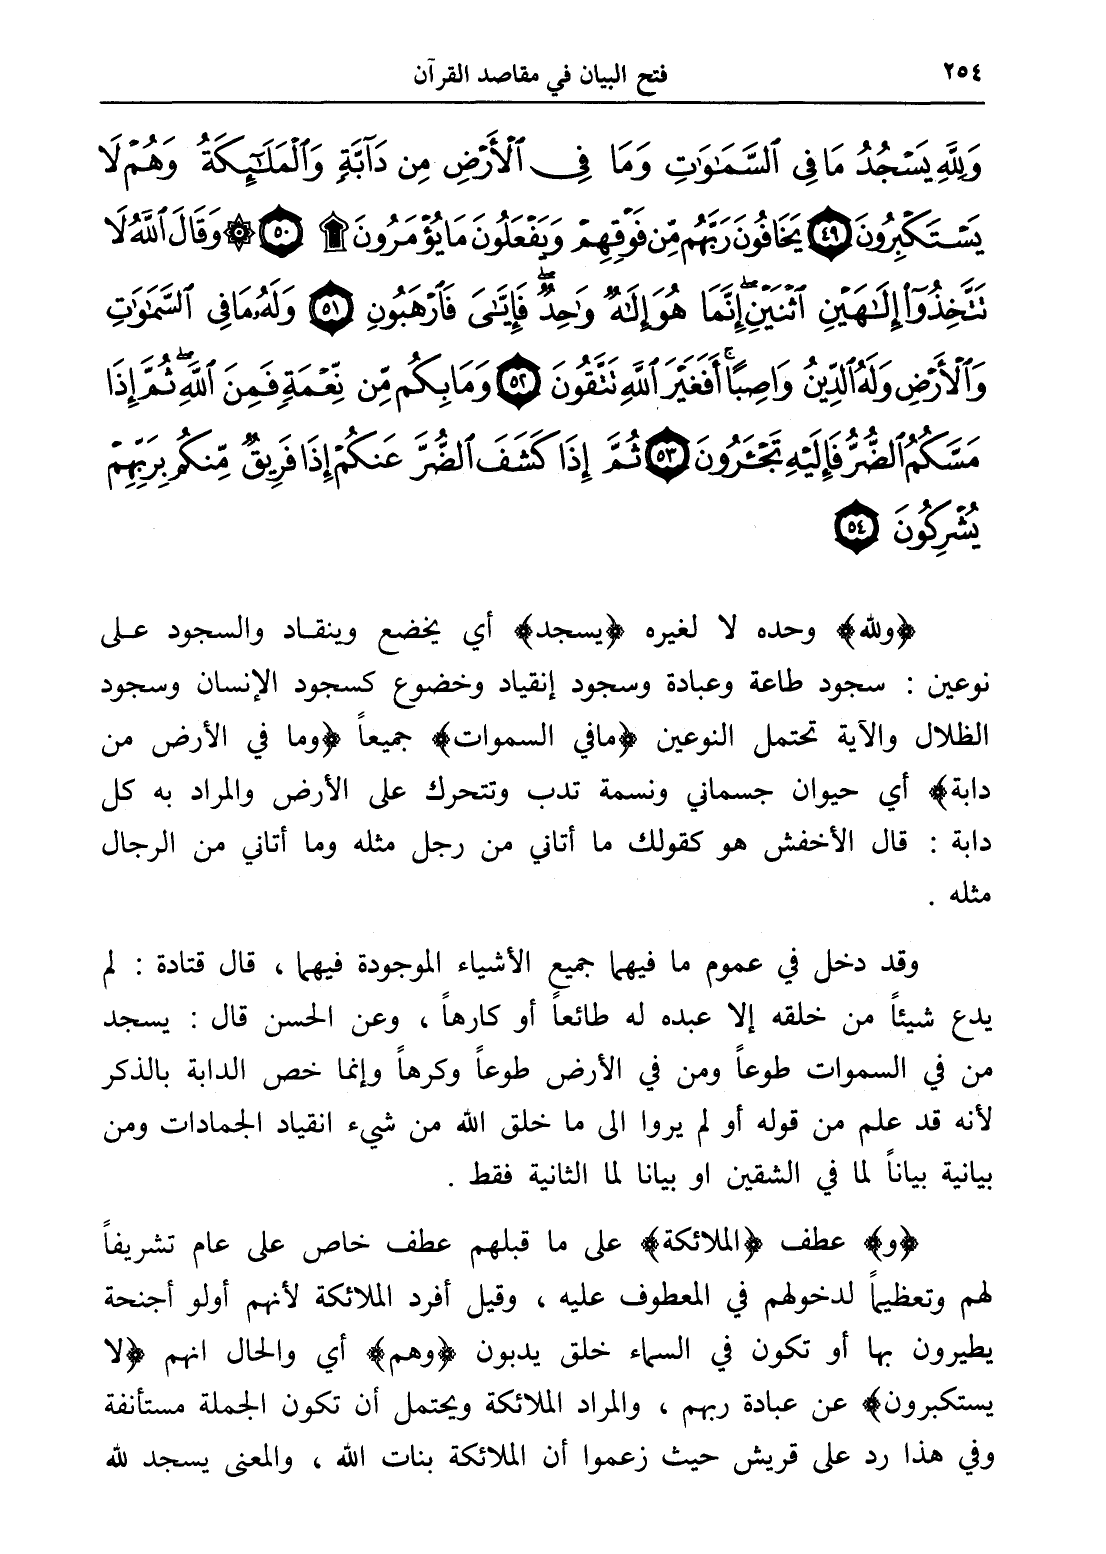 ٢٥٤ فتح البيان في مقاصد القرآن
وَلِلَّهِ يَسْجُدُ مَا فِي السَّمَٰوَٰتِ وَمَا فِي الْأَرْضِ مِن دَآبَّةٍ وَالْمَلَٰٓئِكَةُ وَهُمْ لَا
يَسْتَكْبِرُونَ ٤٩ يَخَافُونَ رَبَّهُم مِّن فَوْقِهِمْ وَيَفْعَلُونَ مَا يُؤْمَرُونَ ۩ ٥٠ ۞ وَقَالَ اللَّهُ لَا
تَتَّخِذُوٓا۟ إِلَٰهَيْنِ اثْنَيْنِ ۖ إِنَّمَا هُوَ إِلَٰهٌ وَٰحِدٌ ۖ فَإِيَّٰيَ فَارْهَبُونِ ٥١ وَلَهُۥ مَا فِي السَّمَٰوَٰتِ
وَالْأَرْضِ وَلَهُ الدِّينُ وَاصِبًا ۚ أَفَغَيْرَ اللَّهِ تَتَّقُونَ ٥٢ وَمَا بِكُم مِّن نِّعْمَةٍ فَمِنَ اللَّهِ ۖ ثُمَّ إِذَا
مَسَّكُمُ الضُّرُّ فَإِلَيْهِ تَجْـَٔرُونَ ٥٣ ثُمَّ إِذَا كَشَفَ الضُّرَّ عَنكُمْ إِذَا فَرِيقٌ مِّنكُم بِرَبِّهِمْ
يُشْرِكُونَ ٥٤
﴿ولله﴾ وحده لا لغيره ﴿يسجد﴾ أي يخضع وينقاد والسجود على
نوعين : سجود طاعة وعبادة وسجود إنقياد وخضوع كسجود الإنسان وسجود
الظلال والآية تحتمل النوعين ﴿مافي السموات﴾ جميعاً ﴿وما في الأرض من
دابة﴾ أي حيوان جسماني ونسمة تدب وتتحرك على الأرض والمراد به كل
دابة : قال الأخفش هو كقولك ما أتاني من رجل مثله وما أتاني من الرجال
مثله .
وقد دخل في عموم ما فيهما جميع الأشياء الموجودة فيهما ، قال قتادة : لم
يدع شيئاً من خلقه إلا عبده له طائعاً أو كارهاً ، وعن الحسن قال : يسجد
من في السموات طوعاً ومن في الأرض طوعاً وكرهاً وإنما خص الدابة بالذكر
لأنه قد علم من قوله أو لم يروا الى ما خلق الله من شيء انقياد الجمادات ومن
بيانية بياناً لما في الشقين او بيانا لما الثانية فقط .
﴿و﴾ عطف ﴿الملائكة﴾ على ما قبلهم عطف خاص على عام تشريفاً
لهم وتعظيماً لدخولهم في المعطوف عليه ، وقيل أفرد الملائكة لأنهم أولو أجنحة
يطيرون بها أو تكون في السماء خلق يدبون ﴿وهم﴾ أي والحال انهم ﴿لا
يستكبرون﴾ عن عبادة ربهم ، والمراد الملائكة ويحتمل أن تكون الجملة مستأنفة
وفي هذا رد على قريش حيث زعموا أن الملائكة بنات الله ، والمعنى يسجد لله